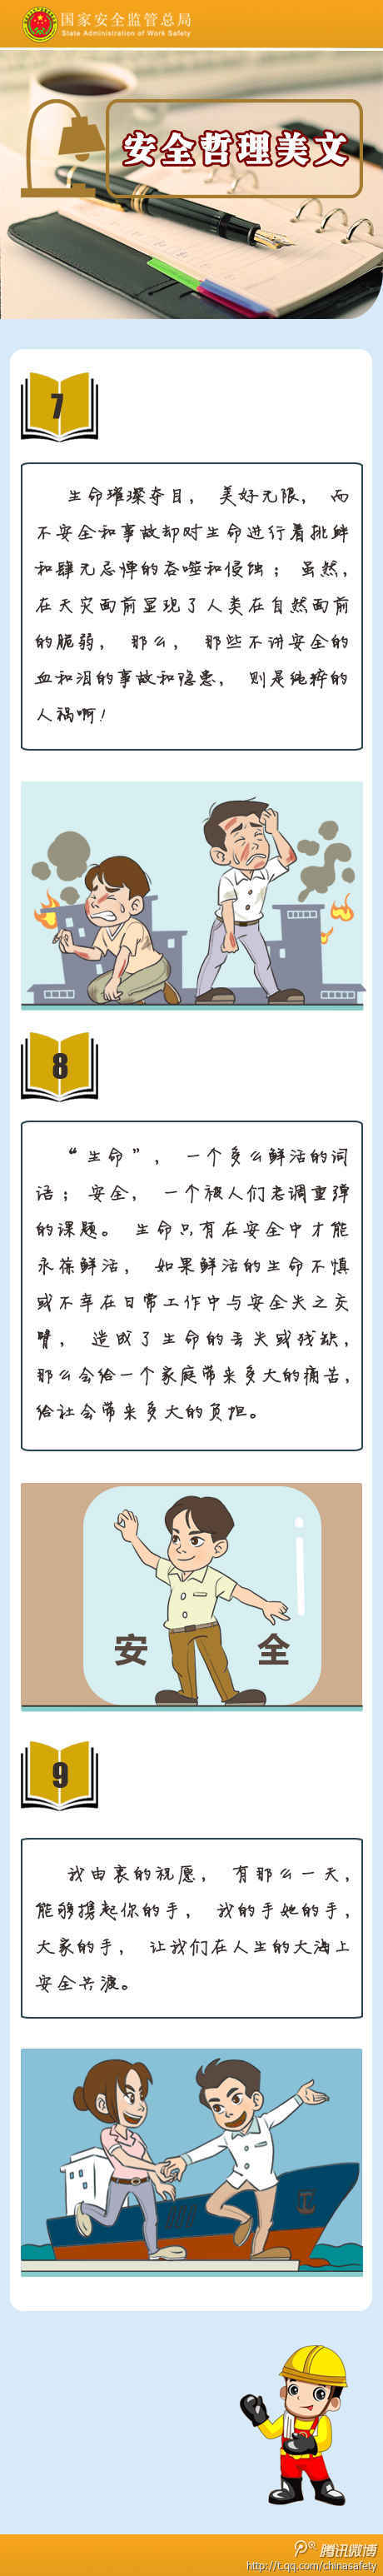 国家安全监管总局
State Administration of Work Safety
安全哲理美文
7
生命璀璨夺目， 美好无限， 而
不安全和事故却对生命进行着挑衅
和肆无忌惮的吞噬和侵蚀； 虽然，
在天灾面前显现了人类在自然面前
的脆弱， 那么， 那些不讲安全的
血和泪的事故和隐患， 则是纯粹的
人祸啊！
8
“生命”， 一个多么鲜活的词
语； 安全， 一个被人们老调重弹
的课题。 生命只有在安全中才能
永葆鲜活， 如果鲜活的生命不慎
或不幸在日常工作中与安全失之交
臂， 造成了生命的丢失或残缺，
那么会给一个家庭带来多大的痛苦，
给社会带来多大的负担。
安 全
9
我由衷的祝愿， 有那么一天，
能够携起你的手， 我的手她的手，
大家的手， 让我们在人生的大海上
安全共渡。
腾讯微博
http://t.qq.com/chinasafety